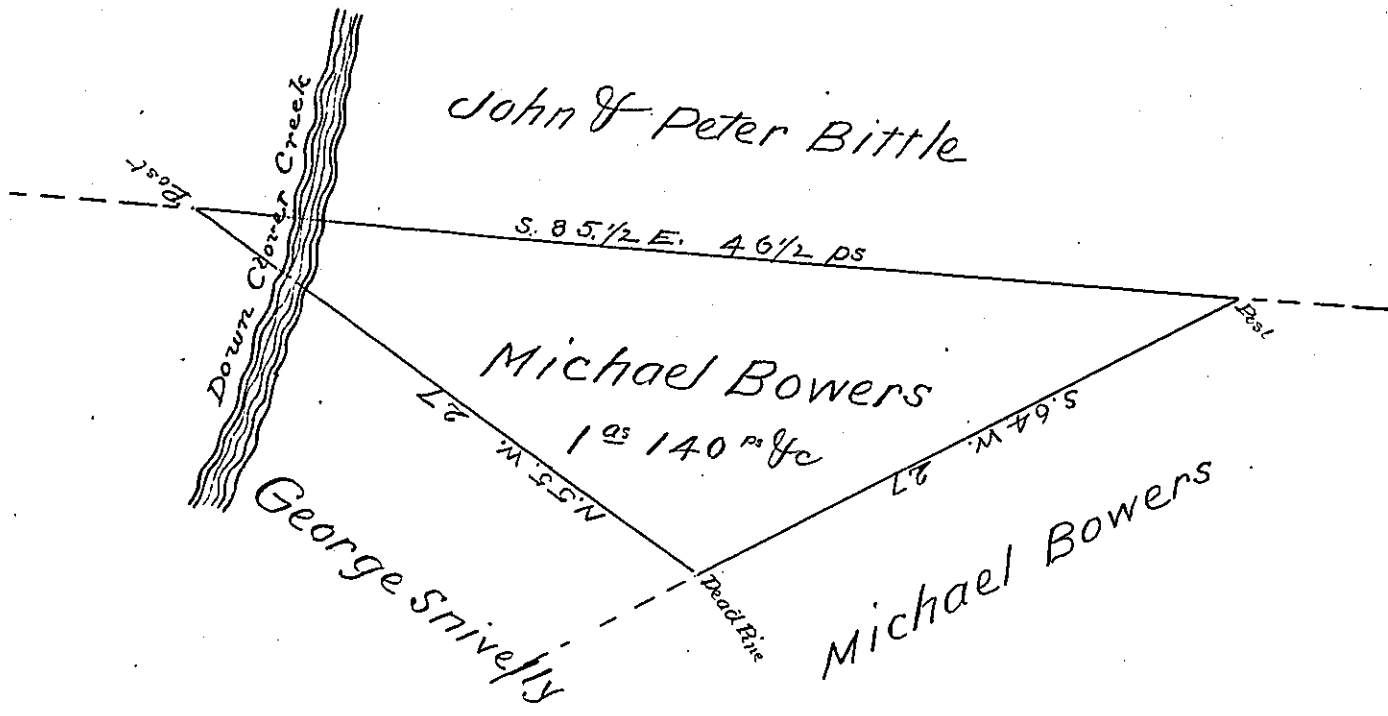 John & Peter Bittle
Down Clover Creek
Post
S. 85.1/2 E. 46 1/2 ps
Post
Michael Bowers
1 as 140 ps &c
N. 55. W. 27
S. 64 W. 27
George Snivelly
Dead Pine
Michael Bowers